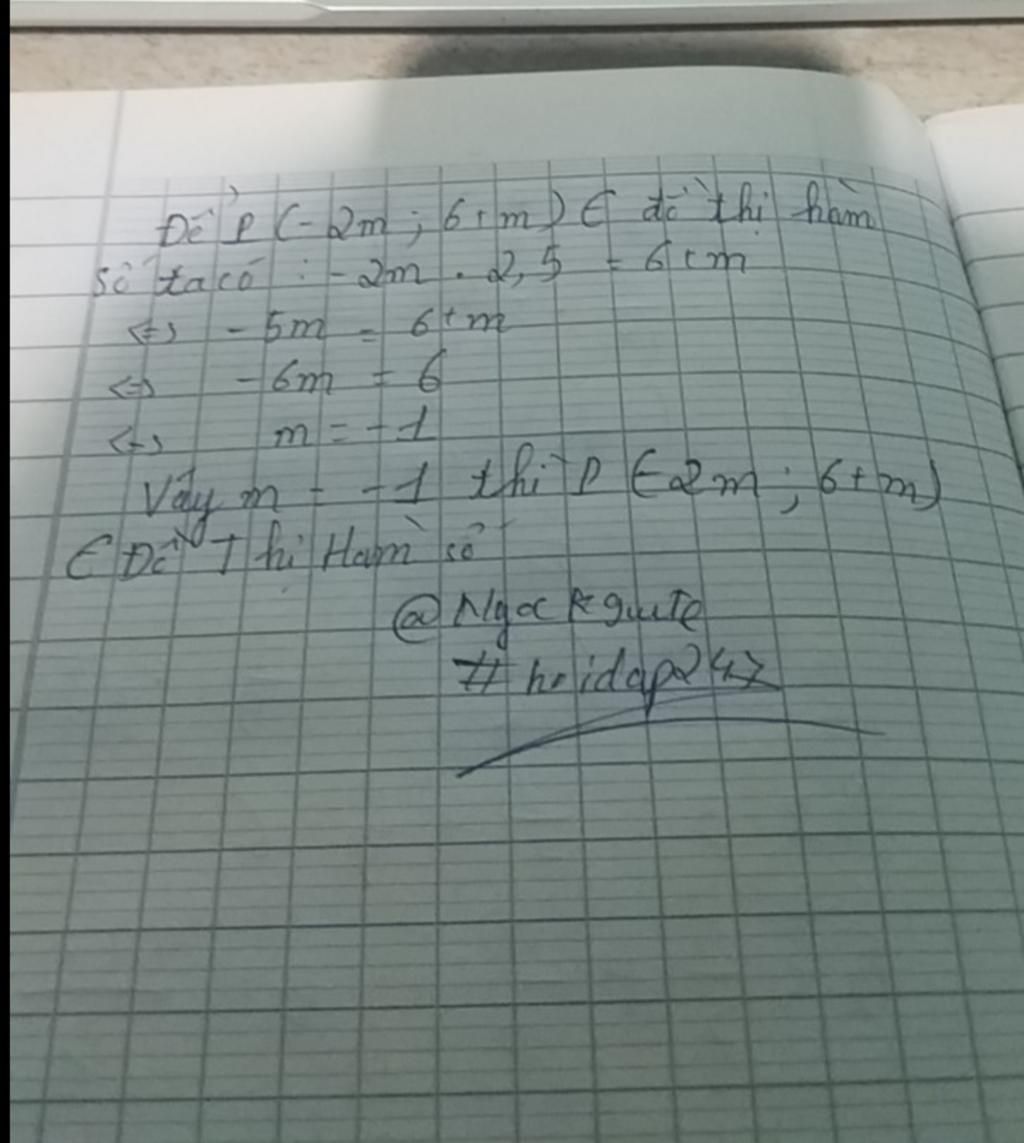 Để P (-2m ; 6+m) ∈ đồ thị hàm
số ta có : -2m . 2,5 = 6+m
<=> -5m = 6+m
<=> -6m = 6
<=> m = -1
Vậy m = -1 thì P (-2m ; 6+m)
∈ Đồ Thị Hàm số
@Ngoc
#hoidap247